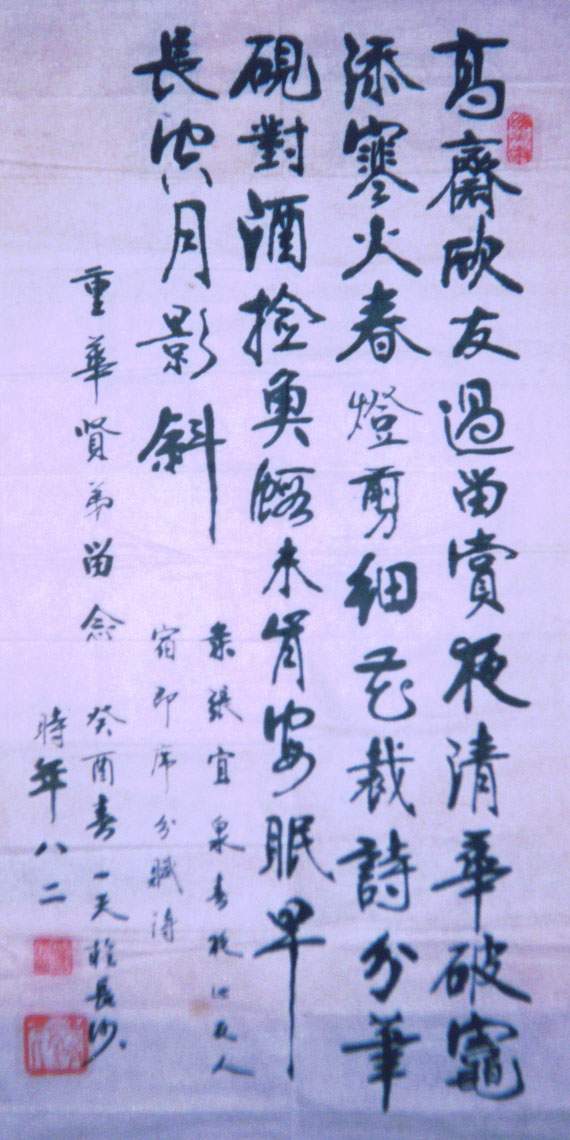 高齋欣友過留賞夜清華破竈
添寒火春燈剪細花裁詩分筆
硯對酒撿魚鰕未肯安眠早
長空月影斜
录張宜泉春夜止友人
宿即席分賦得
重華賢弟留念 癸酉春一天於長沙
時年八二